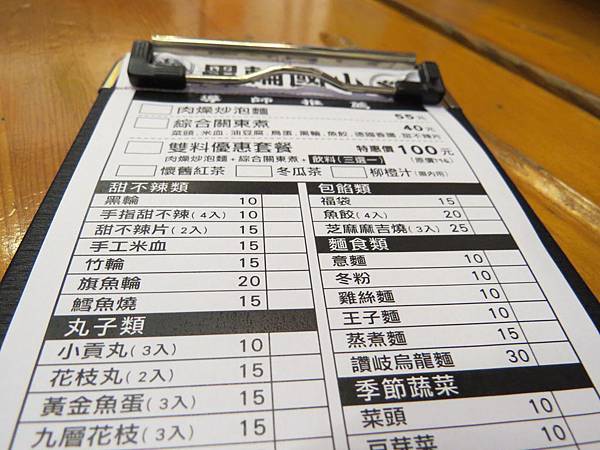 導師推薦
肉燥炒泡麵 55元
綜合關東煮 40元
菜頭.米血.油豆腐.鳥蛋.黑輪.魚餃.德國香腸.甜不辣片
雙料優惠套餐 特惠價100元
肉燥炒泡麵+綜合關東煮+飲料(三選一)
懷舊紅茶 冬瓜茶 柳橙汁(店內用)
甜不辣類
黑輪 10
手指甜不辣(4入) 10
甜不辣片(2入) 15
手工米血 15
竹輪 15
旗魚輪 20
鱈魚燒 15
丸子類
小貢丸(3入) 10
花枝丸(2入) 15
黃金魚蛋(3入) 15
九層花枝(3入) 15
包餡類
福袋 15
魚餃(4入) 20
芝麻麻吉燒(3入) 25
麵食類
意麵 10
冬粉 10
雞絲麵 10
王子麵 10
蒸煮麵 15
讚岐烏龍麵 30
季節蔬菜
菜頭 10
豆芽菜 10